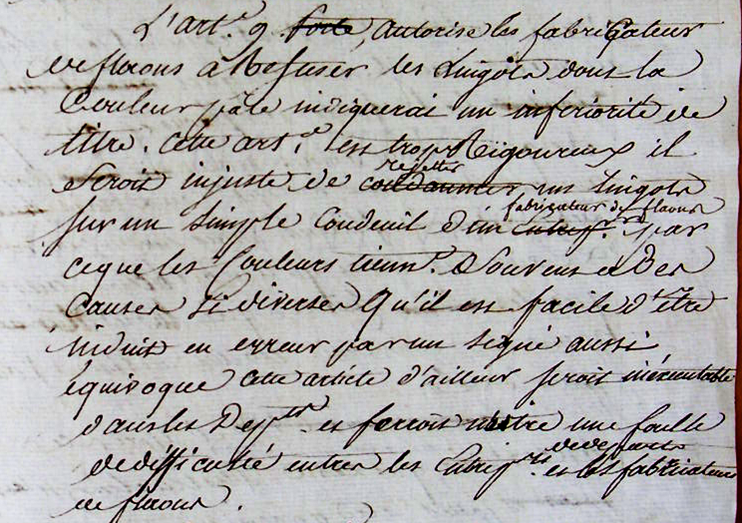 L'art.e 9 porte, autorise les fabricateur
de flaons a Refuser les Lingots dont la
Couleur pale indiquerai un inferiorité de
titre. cette art.e est trop Rigoureux il
seroit injuste de condamner rejetter un lingots
sur un simple Coudeuil d'un Entrep.r fabricateur de flaons par
ceque les Couleurs tienn.t Souvent a Des
Causes Si diverses Qu'il est facile d'être
induit en erreur par un signe aussi
équivoque cette article d'ailleur seroit inéxecutable
dans les Dep.ts et feroit naitre une foulle
de difficulté entres les Entrep.rs de departs et les fabricateurs
de flaons.